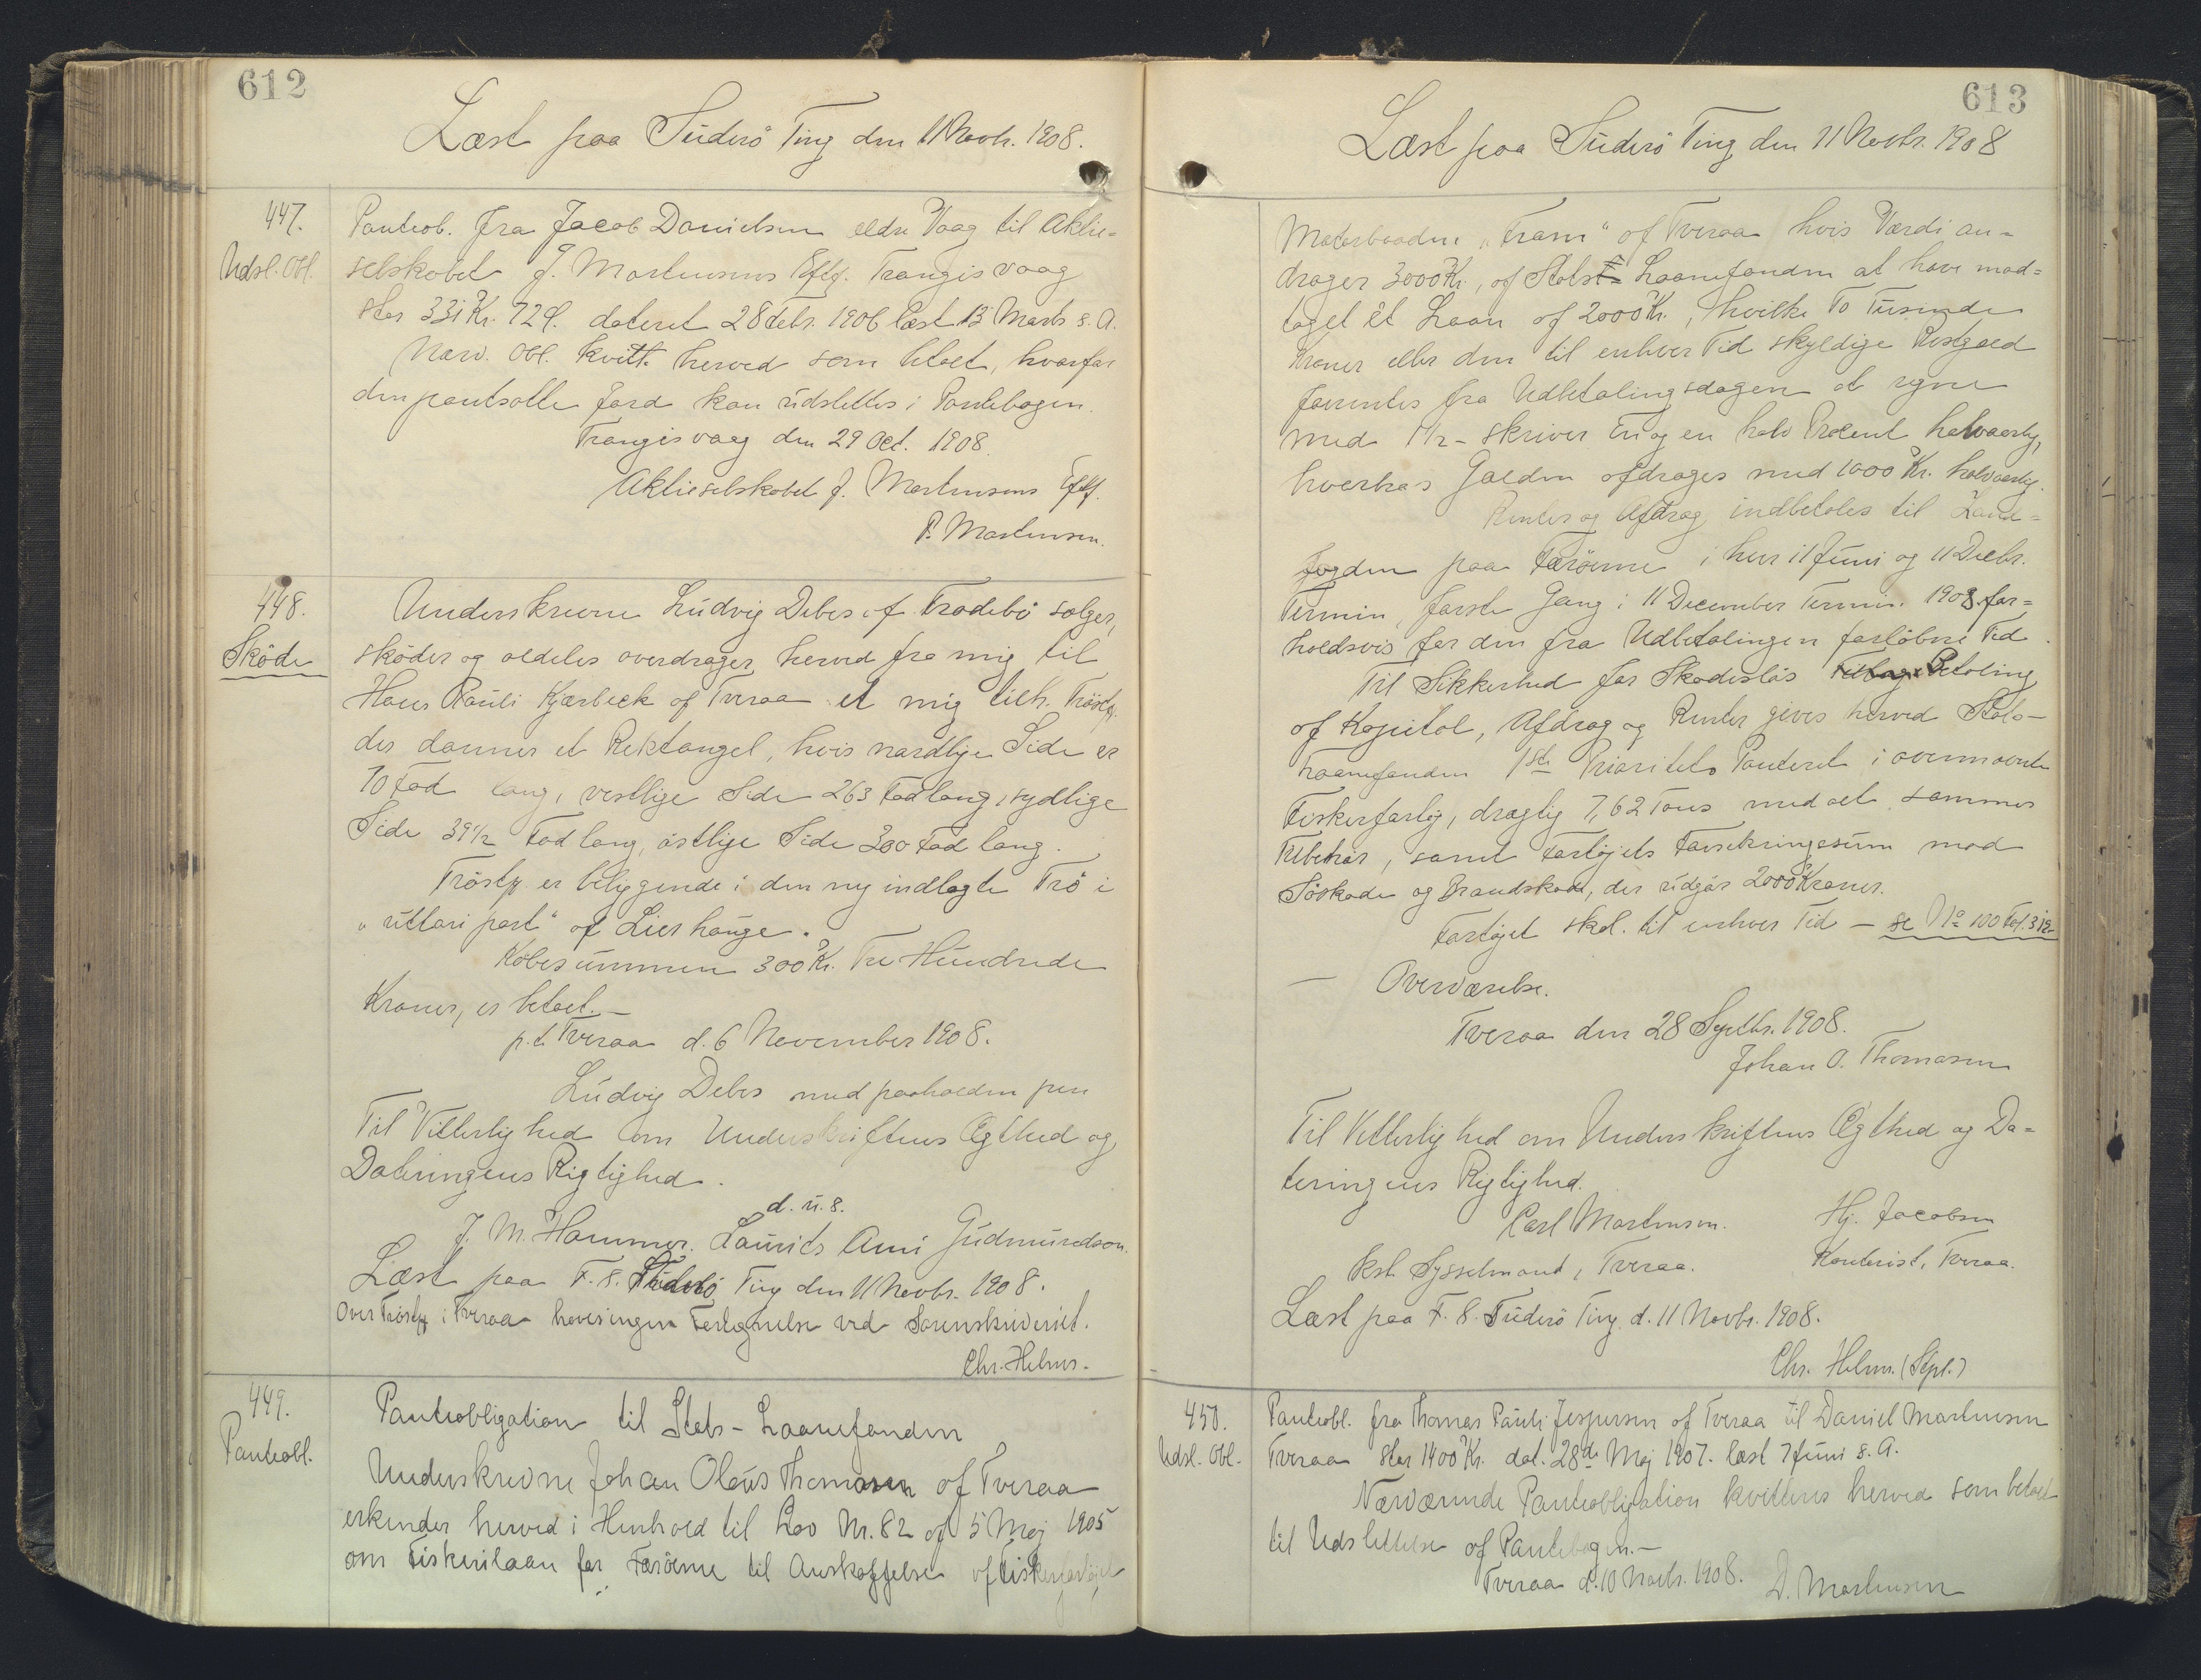 612
Læst paa Suderö Ting den 11 Novbr. 1908.
447.
Udsl. Obl.
Panteob. fra Jacob Danielsen ældre Vaag til Aktie-
selskabet J. Mortensens Eftf. Trangisvaag
stor 331 Kr. 72 Ø. dateret 28 Febr. 1906 læst 13 Marts s. A.
Nærv. Obl. kvitt. herved som betalt, hvorfor
den pantsatte Jord kan udslettes i Pantebogen.
Trangisvaag den 29 Oct. 1908.
Aktieselskabet J. Mortensens Eftf.
P. Mortensen.
448.
Sköde
Underskrevne Ludvig Debes af Frodebö sælger,
sköder og aldeles overdrager herved fra mig til
Hans Pauli Kjærbeck af Tveraa et mig tilh. Tröstk.
der danner et Rektangel, hvis nordlige Side er
70 Fod lang, vestlige Side 263 Fod lang, sydlige
Side 39½ Fod lang, östlige Side 300 Fod lang.
Tröstk. er beliggende i den ny indlagte Trö i
"uttari part" af Lier hauge.
Köbesummen 300 Kr. Tre Hundrede
Kroner, er betalt. —
p. t. Tveraa d. 6 November 1908.
Ludvig Debes med paaholden pen
Til Vitterlighed om Underskriftens Ægthed og
Dateringens Rigtighed.
d. u. s.
J. M. Hammer. Laurits Arni Gudmundson.
Læst paa F. S. Suderö Ting den 11 Novbr. 1908.
Over Tröstk. i Tveraa haves ingen Fortegnelse ved Sorenskriveriet.
Chr. Helms.
449.
Panteobl.
Panteobligation til Stats-Laanefonden
Underskrevne Johan Oleus Thomasen af Tveraa
erkender herved i Henhold til Lov Nr. 82 af 5 Maj 1905
om Fiskerilaan for Færöerne til Anskaffelse af Fiskerfartöjet
613
Læst paa Suderö Ting den 11 Novbr. 1908
Motorbaaden "Fram" af Tveraa hvis Værdi an=
drager 3000 Kr., af Stats Laanefonden at have mod=
taget et Laan af 2000 Kr., hvilke To Tusinde
Kroner eller den til enhver Tid skyldige Restgæld
forrentes fra Udbetalingsdagen at regne
med 1½ - skriver En og en halv Procent halvaarlig,
hvorhos Gælden afdrages med 1000 Kr. halvaarlig.
Renter og Afdrag indbetales til Land=
fogden paa Færöerne i hver 11 Juni og 11 Decbr.
Termin, förste Gang i 11 December Termin 1908 for=
holdsvis for den fra Udbetalingen forlöbne Tid.
Til Sikkerhed for Skadeslös Betaling
af Kapital, Afdrag og Renter gives herved Stats-
Laanefonden 1ste Prioritets Panteret i ovennævnte
Fiskerfartöj, drægtig 7,62 Tons med alt sammes
Tilbehör, samt Fartöjets Forsikringssum mod
Söskade og Brandskade, der udgör 2000 Kroner.
Fartöjet skal til enhver Tid — se No 100 Fol. 312
— Overværelse.
Tveraa den 28 Septbr. 1908.
Johan O. Thomasen
Til Vitterlighed om Underskriftens Ægthed og Da=
teringens Rigtighed.
Carl Mortensen. Hj. Jacobsen
kst. Sysselmand, Tveraa. Kontorist, Tveraa.
Læst paa F. S. Suderö Ting d. 11 Novbr. 1908.
Chr. Helms. (Stpl.)
450.
Udsl. Obl.
Panteobl. fra Thomas Pauli Jespersen af Tveraa til Daniel Mortensen
Tveraa stor 1400 Kr. dat. 28de Maj 1907. læst 7 Juni s. A.
Nærværende Panteobligation kvitteres herved som betalt
til Udslettelse af Pantebogen. —
Tveraa d. 10 Novbr. 1908. D. Mortensen